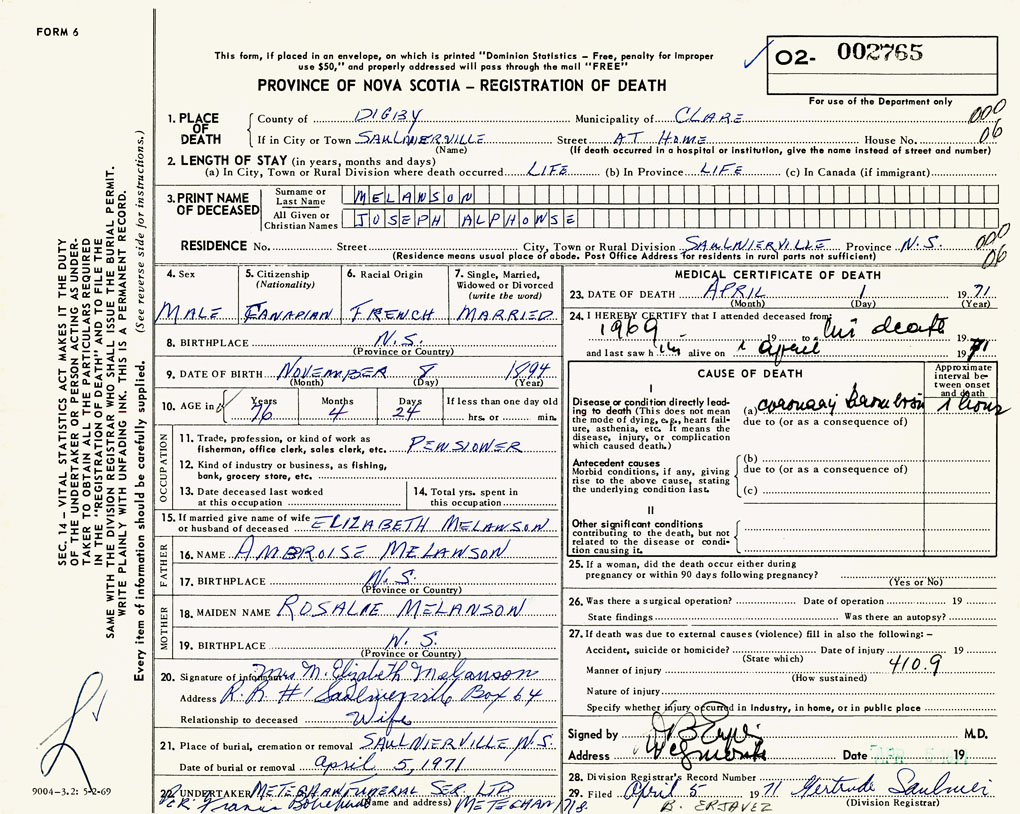 FORM 6
This form, if placed in an envelope, on which is printed "Dominion Statistics - Free, penalty for improper
use $50," and properly addressed will pass through the mail "FREE"
O2- 002765
PROVINCE OF NOVA SCOTIA – REGISTRATION OF DEATH
For use of the Department only
1. PLACE OF DEATH County of DIGBY Municipality of CLARE 000
If in City or Town SAULNIERVILLE Street AT HOME House No. 06
(Name) (If death occurred in a hospital or institution, give the name instead of street and number)
2. LENGTH OF STAY (in years, months and days)
(a) In City, Town or Rural Division where death occurred LIFE (b) In Province LIFE (c) In Canada (if immigrant)
3. PRINT NAME OF DECEASED Surname or Last Name MELANSON
All Given or Christian Names JOSEPH ALPHONSE
RESIDENCE No. Street City, Town or Rural Division SAULNIERVILLE Province N.S. 000
(Residence means usual place of abode. Post Office Address for residents in rural parts not sufficient) 06
4. Sex MALE
5. Citizenship (Nationality) CANADIAN
6. Racial Origin FRENCH
7. Single, Married, Widowed or Divorced (write the word) MARRIED
8. BIRTHPLACE N.S.
(Province or Country)
9. DATE OF BIRTH NOVEMBER 8 1894
(Month) (Day) (Year)
10. AGE in Years 76 Months 4 Days 24 If less than one day old
hrs. or min.
OCCUPATION
11. Trade, profession, or kind of work as
fisherman, office clerk, sales clerk, etc. PENSIONER
12. Kind of industry or business, as fishing,
bank, grocery store, etc.
13. Date deceased last worked
at this occupation
14. Total yrs. spent in
this occupation
15. If married give name of wife
or husband of deceased ELIZABETH MELANSON
FATHER
16. NAME AMBROISE MELANSON
17. BIRTHPLACE N.S.
(Province or Country)
MOTHER
18. MAIDEN NAME ROSALIE MELANSON
19. BIRTHPLACE N.S.
(Province or Country)
20. Signature of informant Mrs M. Elizabeth Melanson
Address R.R. #1 Saulnierville Box 64
Relationship to deceased Wife
21. Place of burial, cremation or removal SAULNIERVILLE N.S.
Date of burial or removal April 5, 1971
22. UNDERTAKER METEGHAN FUNERAL SER. LTD
PER. Francis (Name and address) METEGHAN N.S.
MEDICAL CERTIFICATE OF DEATH
23. DATE OF DEATH APRIL 1 1971
(Month) (Day) (Year)
24. I HEREBY CERTIFY that I attended deceased from
1969 19 to his death 19
and last saw him alive on 1 April 1971
CAUSE OF DEATH
Approximate interval between onset and death
I
Disease or condition directly leading to death (This does not mean the mode of dying, e.g., heart failure, asthenia, etc. It means the disease, injury, or complication which caused death.)
(a) coronary thrombosis 1 hour
due to (or as a consequence of)
Antecedent causes
Morbid conditions, if any, giving rise to the above cause, stating the underlying condition last.
(b)
due to (or as a consequence of)
(c)
II
Other significant conditions
contributing to the death, but not related to the disease or condition causing it.
25. If a woman, did the death occur either during
pregnancy or within 90 days following pregnancy?
(Yes or No)
26. Was there a surgical operation? Date of operation 19
State findings Was there an autopsy?
27. If death was due to external causes (violence) fill in also the following: –
Accident, suicide or homicide? Date of injury 19
(State which) 410.9
Manner of injury
(How sustained)
Nature of injury
Specify whether injury occurred in Industry, in home, or in public place
Signed by M.D.
Address Date 19
28. Division Registrar's Record Number
29. Filed April 5 1971 Gertrude Saulnier
B. ERJAVEZ (Division Registrar)
SEC. 14 – VITAL STATISTICS ACT MAKES IT THE DUTY
OF THE UNDERTAKER OR PERSON ACTING AS UNDER-
TAKER TO OBTAIN ALL THE PARTICULARS REQUIRED
IN THE "REGISTRATION OF DEATH" AND TO FILE THE
SAME WITH THE DIVISION REGISTRAR WHO SHALL ISSUE THE BURIAL PERMIT.
WRITE PLAINLY WITH UNFADING INK. THIS IS A PERMANENT RECORD.
Every item of information should be carefully supplied. (See reverse side for instructions.)
9004-3.2: 5-2-69